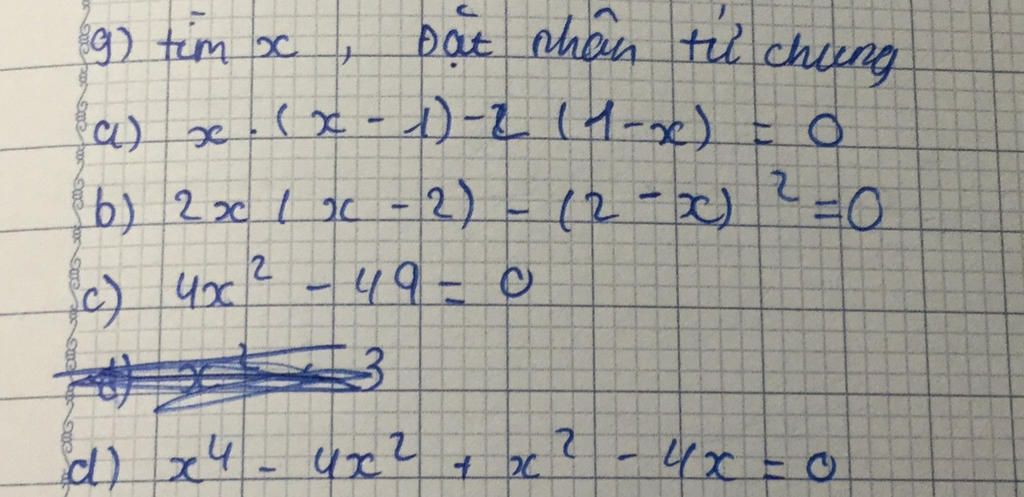 g) tìm x , Đặt nhân tử chung
a) x . ( x - 1) - 2 (1 - x) = 0
b) 2x ( x - 2) - (2 - x)² = 0
c) 4x² - 49 = 0
3
d) x⁴ - 4x² + x² - 4x = 0